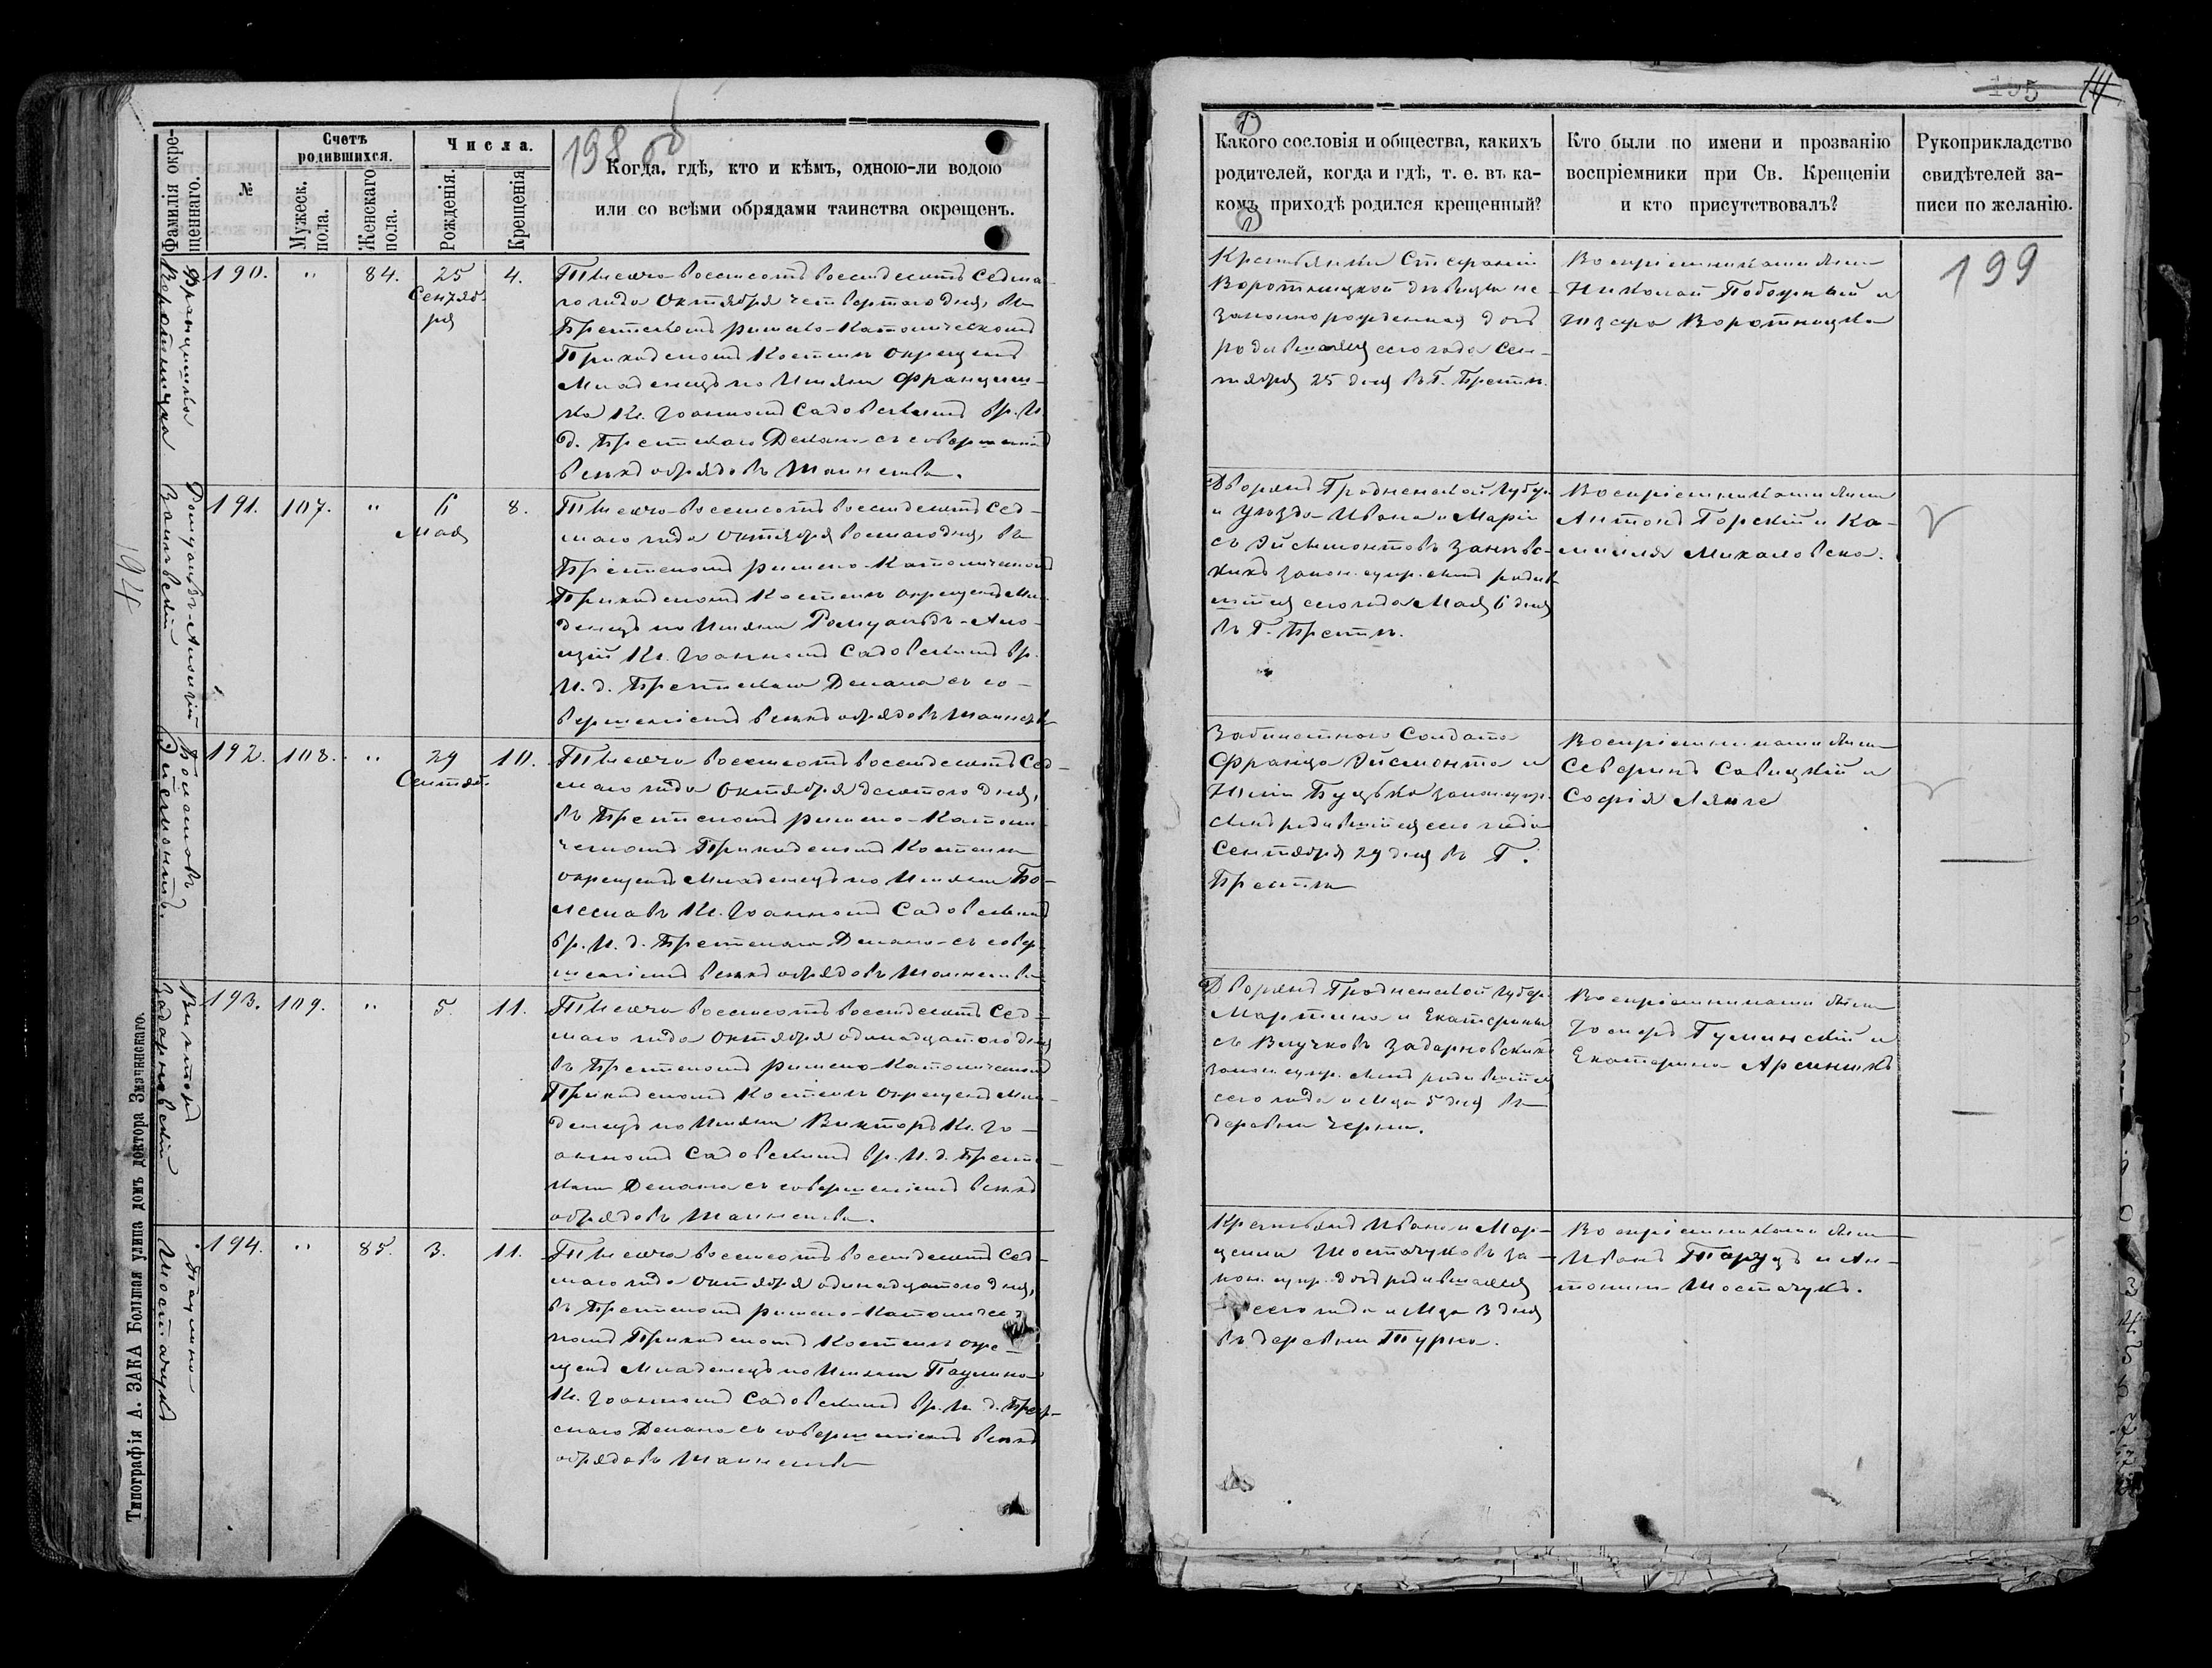 198 об
Фамилія окрещеннаго.
№
Счетъ родившихся.
Мужеск. пола.
Женскаго пола.
Числа.
Рожденія.
Крещенія
Когда, гдѣ, кто и кѣмъ, одною-ли водою
или со всѣми обрядами таинства окрещенъ.
Франциш­ка
Воротницка
190.
"
84.
25
Сентяб-
ря
4.
Тысяча восемсотъ восемдесятъ седма-
го года Октября четвертого дня, въ
Брестскомъ римско-Католическомъ
Приходскомъ Костелѣ окрещенъ
Младенецъ по Имяни Францишь-
ка Кс. Іоанномъ Садовскимъ вр. И
д. Брестскаго Декана съ совершеніемъ
всѣхъ обрядовъ Таинства.
Ромуальдъ-Алоизій
Занѣвскій
191.
107.
"
6
Мая
8.
Тысяча восемсотъ восемдесятъ сед-
маго года Октября восмаго дня, въ
Брестскомъ римско-Католическомъ
Приходскомъ Костелѣ окрещенъ Мла-
денецъ по Имяни Ромуальдъ-Ало-
изій Кс. Іоанномъ Садовскимъ вр.
И. д. Брестскаго Декана съ со-
вершеніемъ всѣхъ обрядовъ Таинства
Болеславъ
Эйсмонтъ.
192.
108.
"
29
Сентяб.
10.
Тысяча восемсотъ восемдесятъ Сед-
маго года Октября десятого дня,
въ Брестскомъ римско-Католи-
ческомъ Приходскомъ Костелѣ
окрещенъ Младенецъ по Имяни Бо-
леславъ Кс. Іоанномъ Садовскимъ
вр. И. д. Брестскаго Декана съ совер-
шеніемъ всѣхъ обрядовъ Таинства
Викторъ
Задарновскій
193.
109.
"
5.
11.
Тысяча восемсотъ восемдесятъ Сед-
маго года Октября одинадцатого дня
въ Брестскомъ римско-Католическомъ
Приходскомъ Костелѣ окрещенъ Мла-
денецъ по Имяни Викторъ Кс. Іо-
анномъ Садовскимъ вр. И. д. Брест-
скаго Декана съ совершеніемъ всѣхъ
обрядовъ Таинства.
Паулина
Шостачукъ
194.
"
85.
3.
11.
Тысяча восемсотъ восемдесятъ Сед-
маго года Октября одинадцатого дня,
въ Брестскомъ римско-Католичес-
комъ Приходскомъ Костелѣ окре-
щенъ Младенецъ по Имяни Паулина
Кс. Іоанномъ Садовскимъ вр. И. д. Брест-
скаго Декана съ совершеніемъ всѣхъ
обрядовъ Таинства
194
Типографія А. ЗАКА Большая улица домъ доктора Змачинскаго.
195
1)
Какого сословія и общества, какихъ
родителей, когда и гдѣ, т. е. въ ка-
комъ приходѣ родился крещенный?
2)
Кто были по имени и прозванію
воспріемники при Св. Крещеніи
и кто присутствовалъ?
Рукоприкладство
свидѣтелей за-
писи по желанію.
Крестьянки Стефаніи
Воротницкой дѣвицы не-
законнорожденная дочь
родившаяся сего года Сен-
тября 25 дня въ Г. Брестѣ.
Воспріемниками были
Николай Побожный и
Іозефа Воротницка
199
Дворянъ Гродненской Губер.
и Уѣзда Ивана и Маріи
съ Эйсымонтовъ Занѣвс-
кихъ закон. супр. сынъ родив-
шійся сего года Мая 6 дня
въ Г. Брестѣ.
Воспріемниками были
Антонъ Горскій и Ка-
милля Михаловска.
Забилетнаго Солдата
Франца Эйсмонта и
Юліи Буцько закон. супр.
сынъ родившійся сего года
Сентября 29 дня въ Г.
Брестѣ
Воспріемниками были
Северинъ Савицкій и
Софія Лянге
Дворянъ Гродненской Губер.
Мартина и Екатерины
съ Задарновскихъ
закон. супр. сынъ родившійся
сего года и М-ца 5 дня въ
деревни Черни.
Воспріемниками были
Іосифъ Гуминскій и
Екатерина Арсинюкъ
Крестьянъ Ивана и Мар-
целли Шостачуковъ за-
кон. супр. дочь родившаяся
сего года и М-ца 3 дня
въ деревни Турна.
Воспріемниками были
Иванъ и Ан-
тонина Шостачукъ.